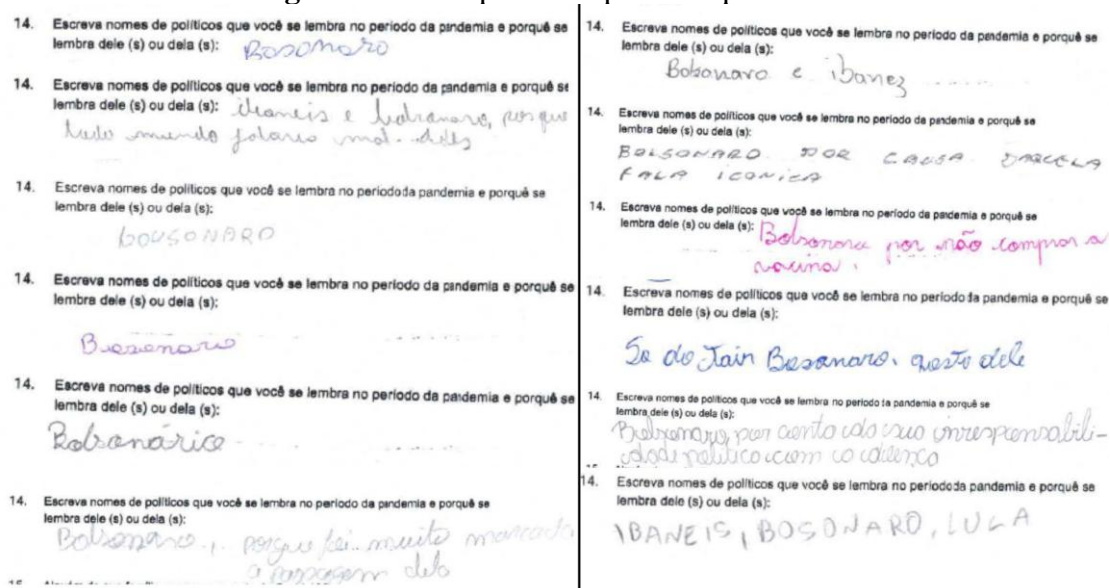 14. Escreva nomes de políticos que você se lembra no período da pandemia e porquê se
lembra dele (s) ou dela (s): Bosonaro
14. Escreva nomes de políticos que você se lembra no período da pandemia e porquê se
lembra dele (s) ou dela (s): ibaneis e bolsanaro, porque
tudo mundo falaria mal deles
14. Escreva nomes de políticos que você se lembra no período da pandemia e porquê se
lembra dele (s) ou dela (s):
BOUSONARO
14. Escreva nomes de políticos que você se lembra no período da pandemia e porquê se
lembra dele (s) ou dela (s):
14. Escreva nomes de políticos que você se lembra no período da pandemia e porquê se
lembra dele (s) ou dela (s):
14. Escreva nomes de políticos que você se lembra no período da pandemia e porquê se
lembra dele (s) ou dela (s):
Bolsonaro, porque foi muito marcada
a passagem dele
14. Escreva nomes de políticos que você se lembra no período da pandemia e porquê se
lembra dele (s) ou dela (s):
Bolsonaro e ibanez
14. Escreva nomes de políticos que você se lembra no período da pandemia e porquê se
lembra dele (s) ou dela (s):
BOLSONARO POR CAUSA DAQUELA
FALA ICONICA
14. Escreva nomes de políticos que você se lembra no período da pandemia e porquê se
lembra dele (s) ou dela (s): Bolsonaro por não comprar a
vacina.
14. Escreva nomes de políticos que você se lembra no período da pandemia e porquê se
lembra dele (s) ou dela (s):
So do Jair Bosanaro. gosto dele
14. Escreva nomes de políticos que você se lembra no período da pandemia e porquê se
lembra dele (s) ou dela (s):
Bolsonaro, por conta da sua irresponsabili-
dade política com a doença
14. Escreva nomes de políticos que você se lembra no período da pandemia e porquê se
lembra dele (s) ou dela (s):
IBANEIS, BOSONARO, LULA